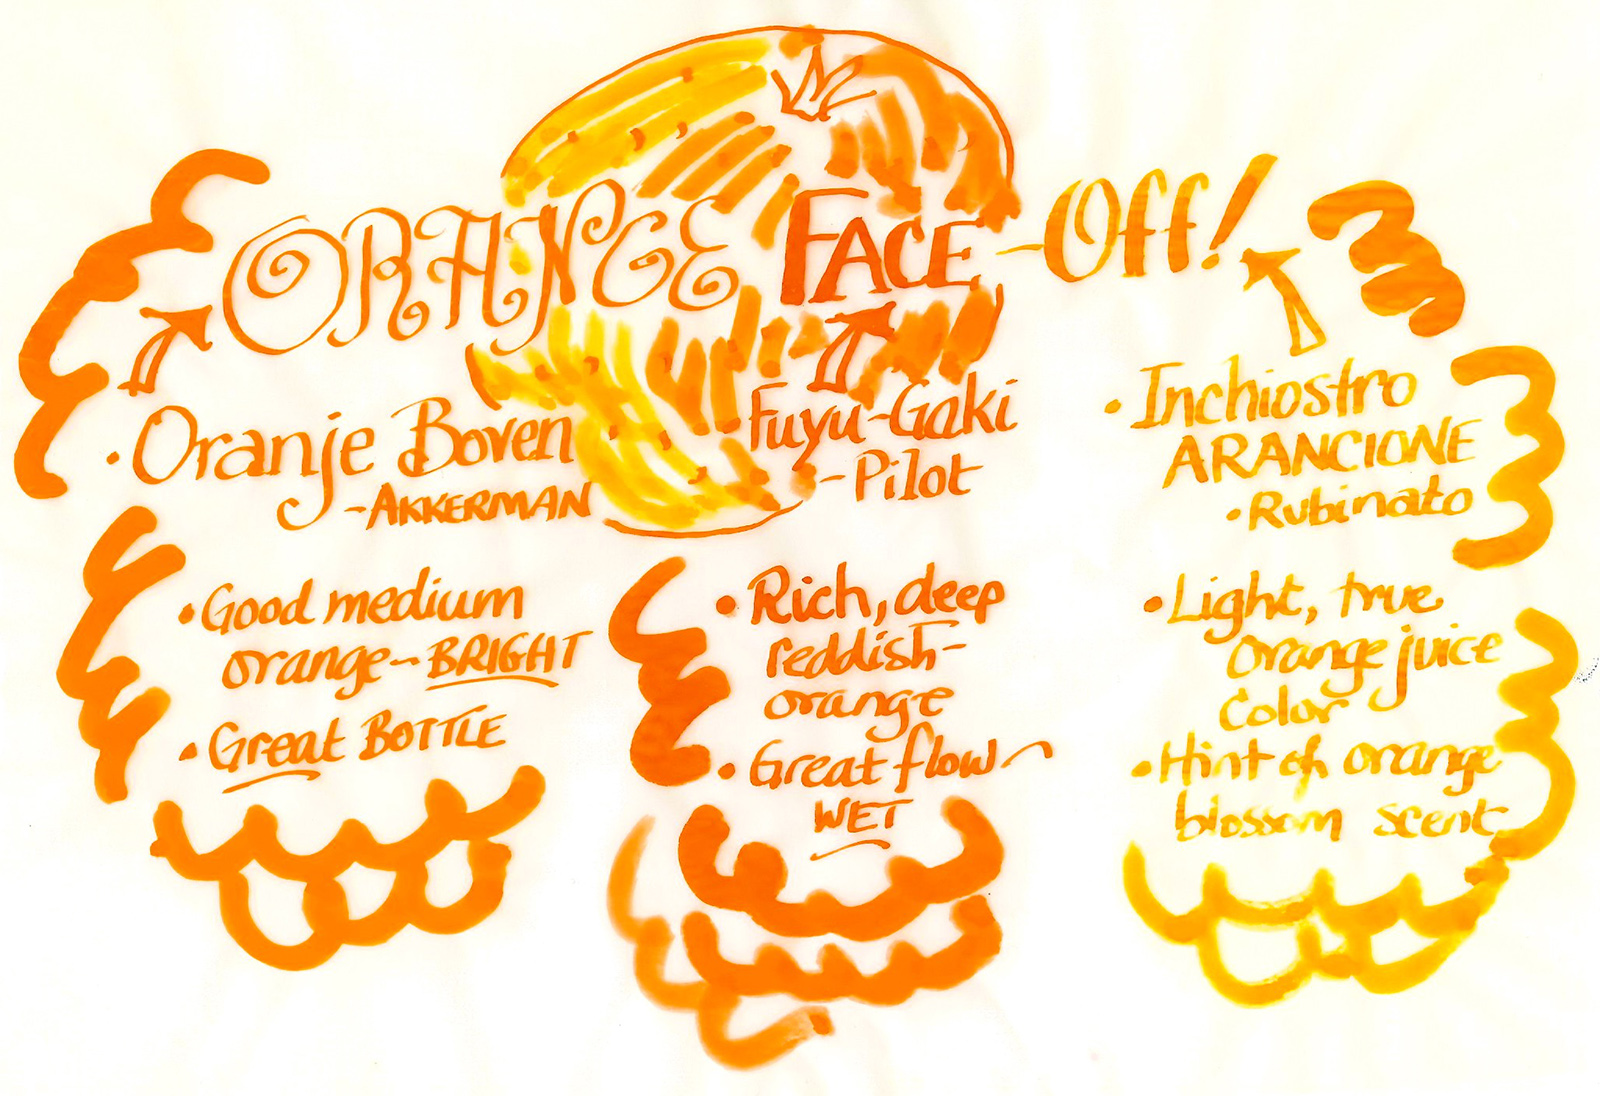 ORANGE FACE-Off!
• Oranje Boven
-AKKERMAN
• Good medium
orange - BRIGHT
• Great BOTTLE
Fuyu-Gaki
-Pilot
• Rich, deep
reddish-
orange
• Great flow -
WET
• Inchiostro
ARANCIONE
• Rubinato
• Light, true
orange juice
color
• Hint of orange
blossom scent